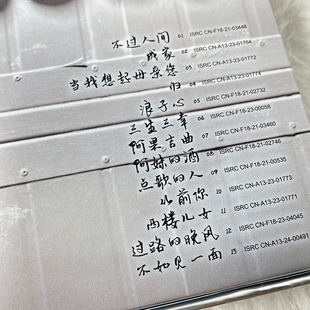 不过人间 01 ISRC CN-F18-21-03448
成家 02 ISRC CN-A13-23-01764
当我想起母亲您 03 ISRC CN-A13-23-01772
归 04 ISRC CN-A13-23-01774
浪子心 05 ISRC CN-F18-21-02732
三生三幸 06 ISRC CN-F18-23-00056
阿果吉曲 07 ISRC CN-F18-21-03460
阿妹的酒 08 ISRC CN-F18-21-02746
点歌的人 09 ISRC CN-F18-21-00535
以前你 10 ISRC CN-A13-23-01771
西楼儿女 11 ISRC CN-A13-23-01773
过路的晚风 12 ISRC CN-F18-23-04045
不如见一面 13 ISRC CN-A13-24-00491